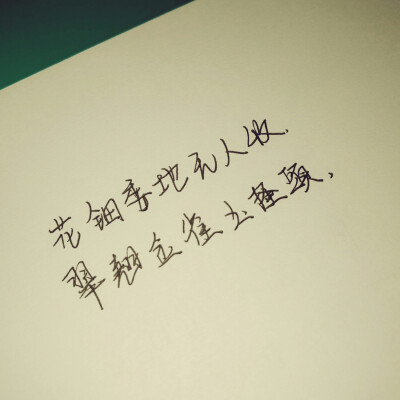 花钿委地无人收.
翠翘金雀玉搔头.